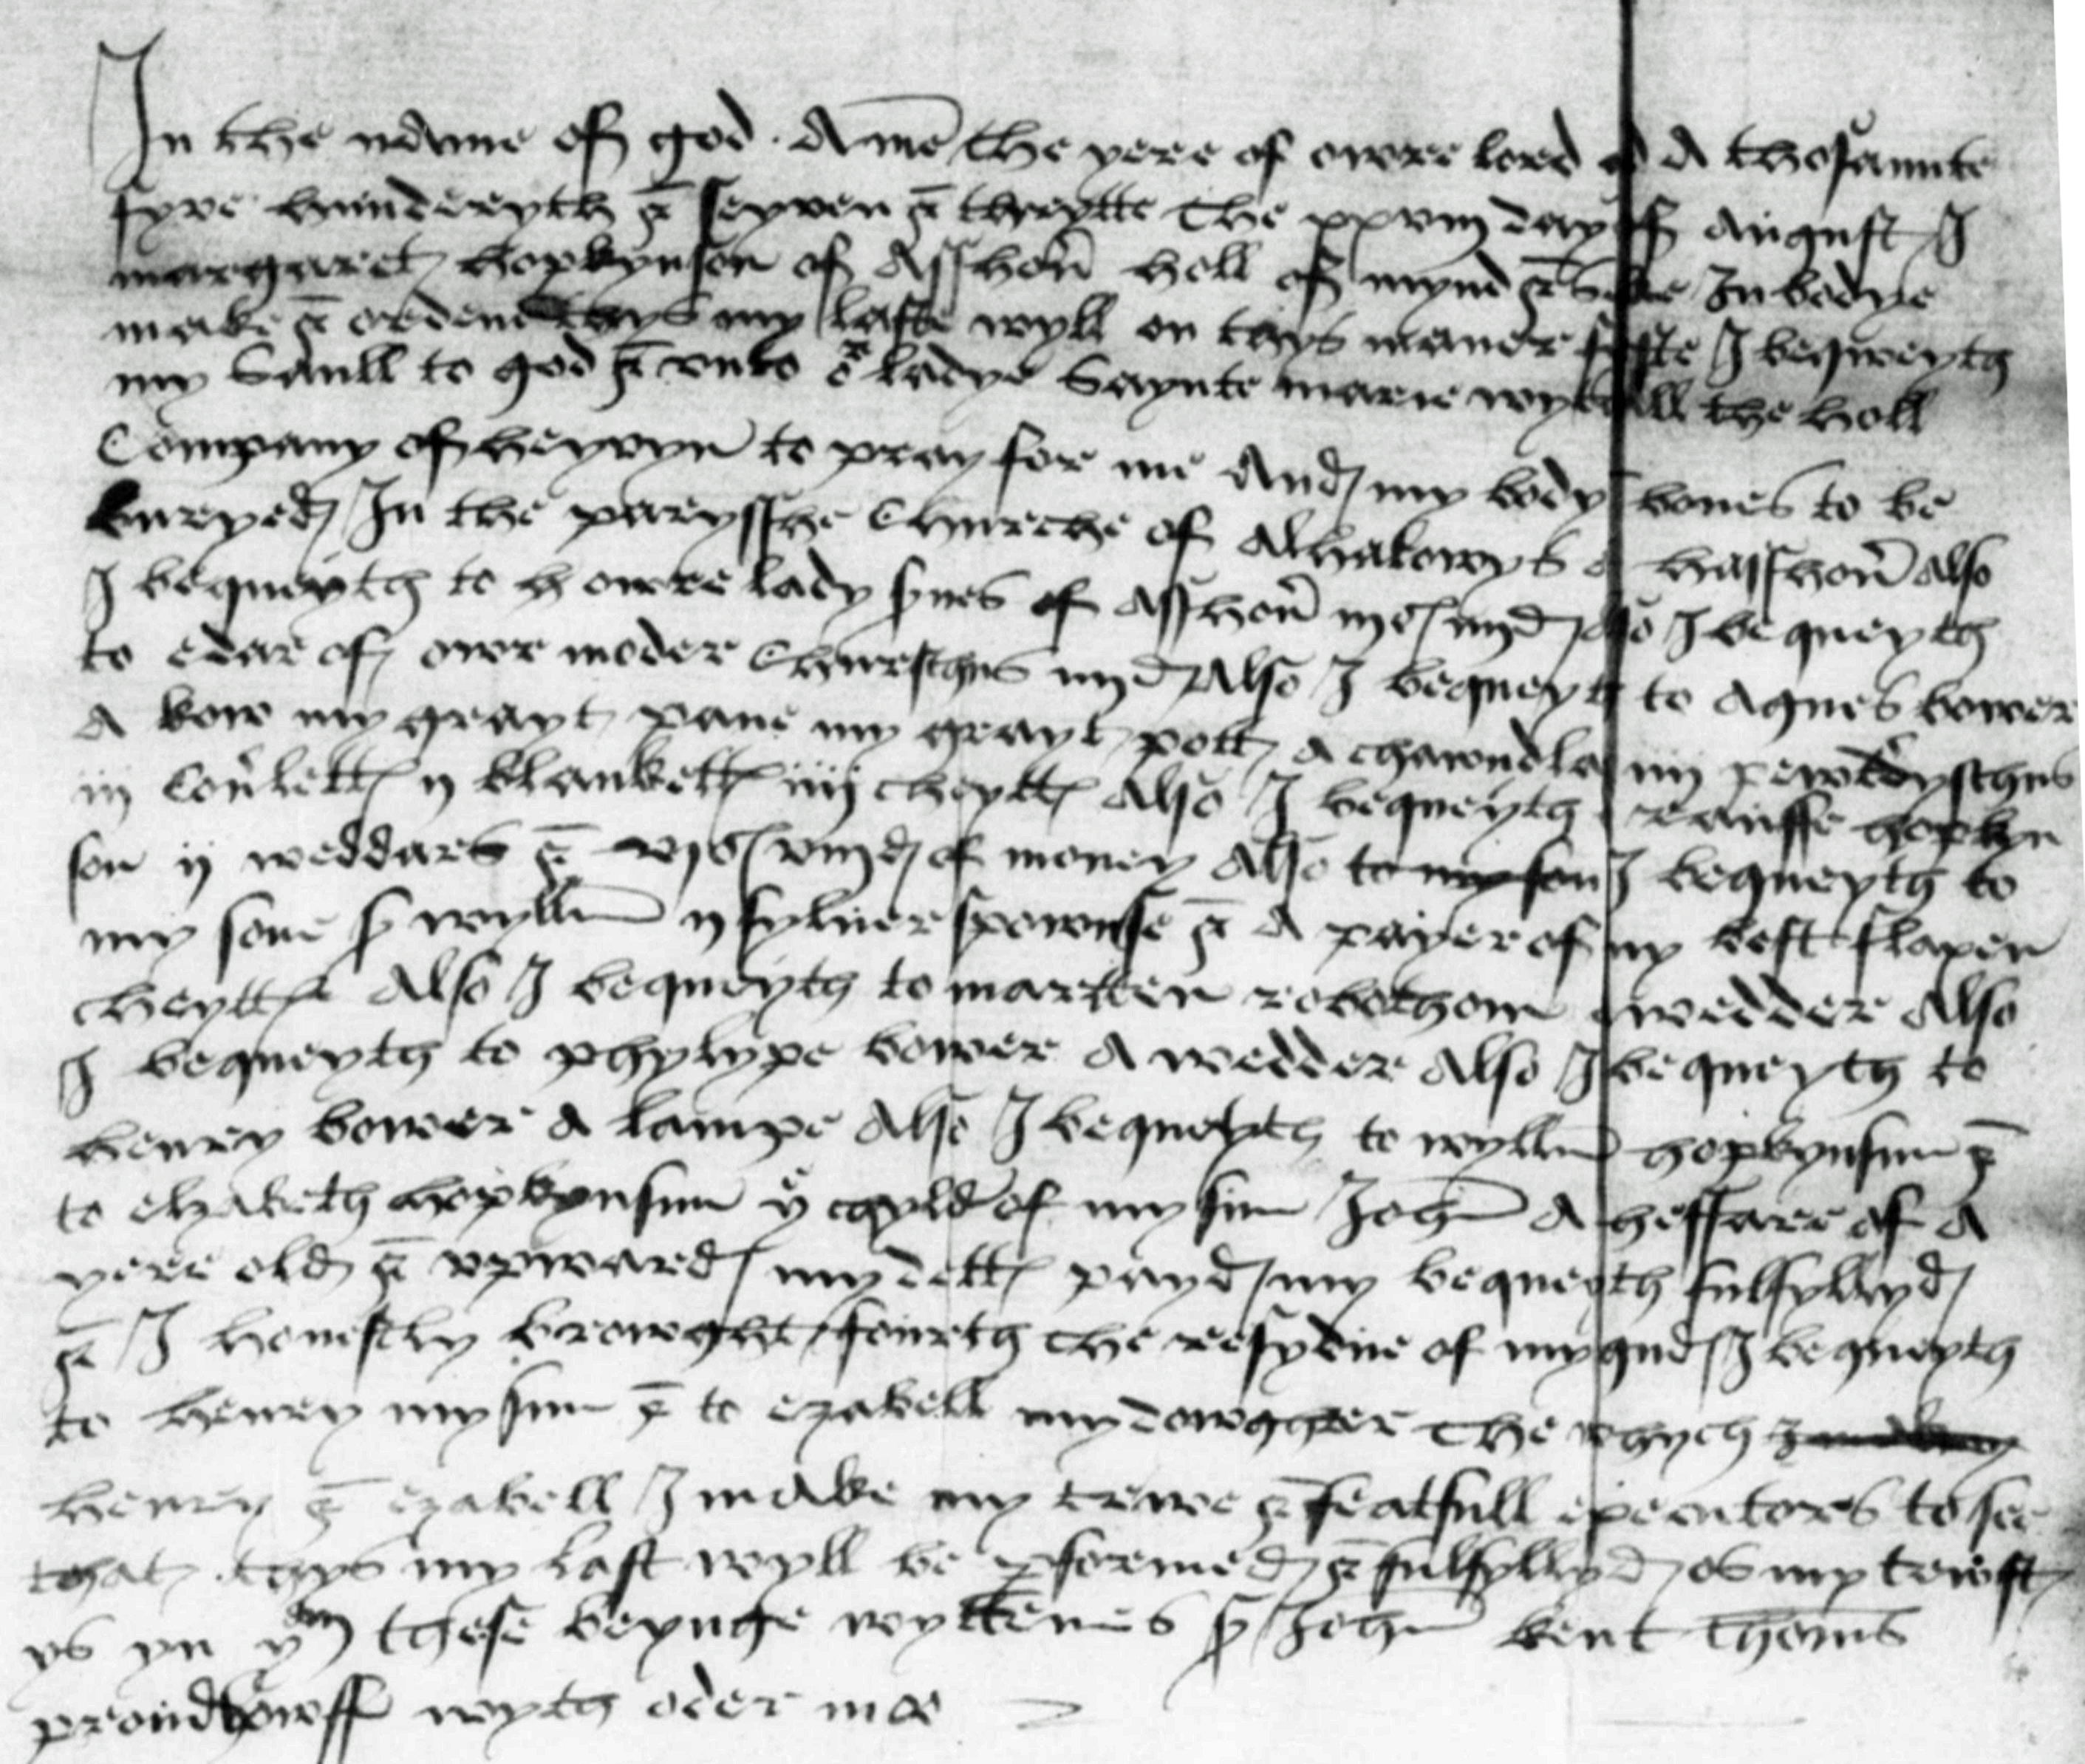 In the name of god Ame the yere of owre lord a thosannte
fyve hundereyth & seyven & threytte the xxviij day of August I
margaret hopkynson of Asshoũ holl of mynd & seke In bodye
make & ordene thys my laste wyll on thys maner fyste I beqweyth
my Saull to god & unto oʳ ladye Saynte marie wyt all the holl
Company of heyvyn to pray for me And my body bones to be
buryed In the parysshe Churche of Alhalowys hasshoũ also
I bequeyth to owre lady of Asshoũ iijs iiijd also I bequeyth
to of owr moder Churschus iiijd Also I bequeyt to Agnes bower
A kow my grayt pane my grayt pott a chawndla iiij pewdyschus
iij Coũlett ij blankett iiij cheytt Also I bequeyth hopkyn
son ij weddars & vjs viijd of money Also to my son I bequeyth to
my sone wyllm ij sylver spownse & A payer of my best flaxen
cheytt Also I bequeyth to marten robothom wedder Also
I bequeyth to phylype bower A wedder Also I bequeyth to
henry bower a lampe Also I bequeyth to wyllm hopkynsun &
to elzabeth hopkynsun yᵉ chyld of my sun John A heffare of A
yere old & upward my dett payd my bequeyth fulfyllyd
& I honestly browght fourth the resydue of my gud I bequeyth
to henry my sun & to ezabell my dowghter the whych
henry & ezabell I make my trewe & featfull executores to see
that thys my last wyll be pformed & fulfyllyd os my trwst
ys yn yᵐ these beynge wyttenes John kent Thoms
wyth oder moe